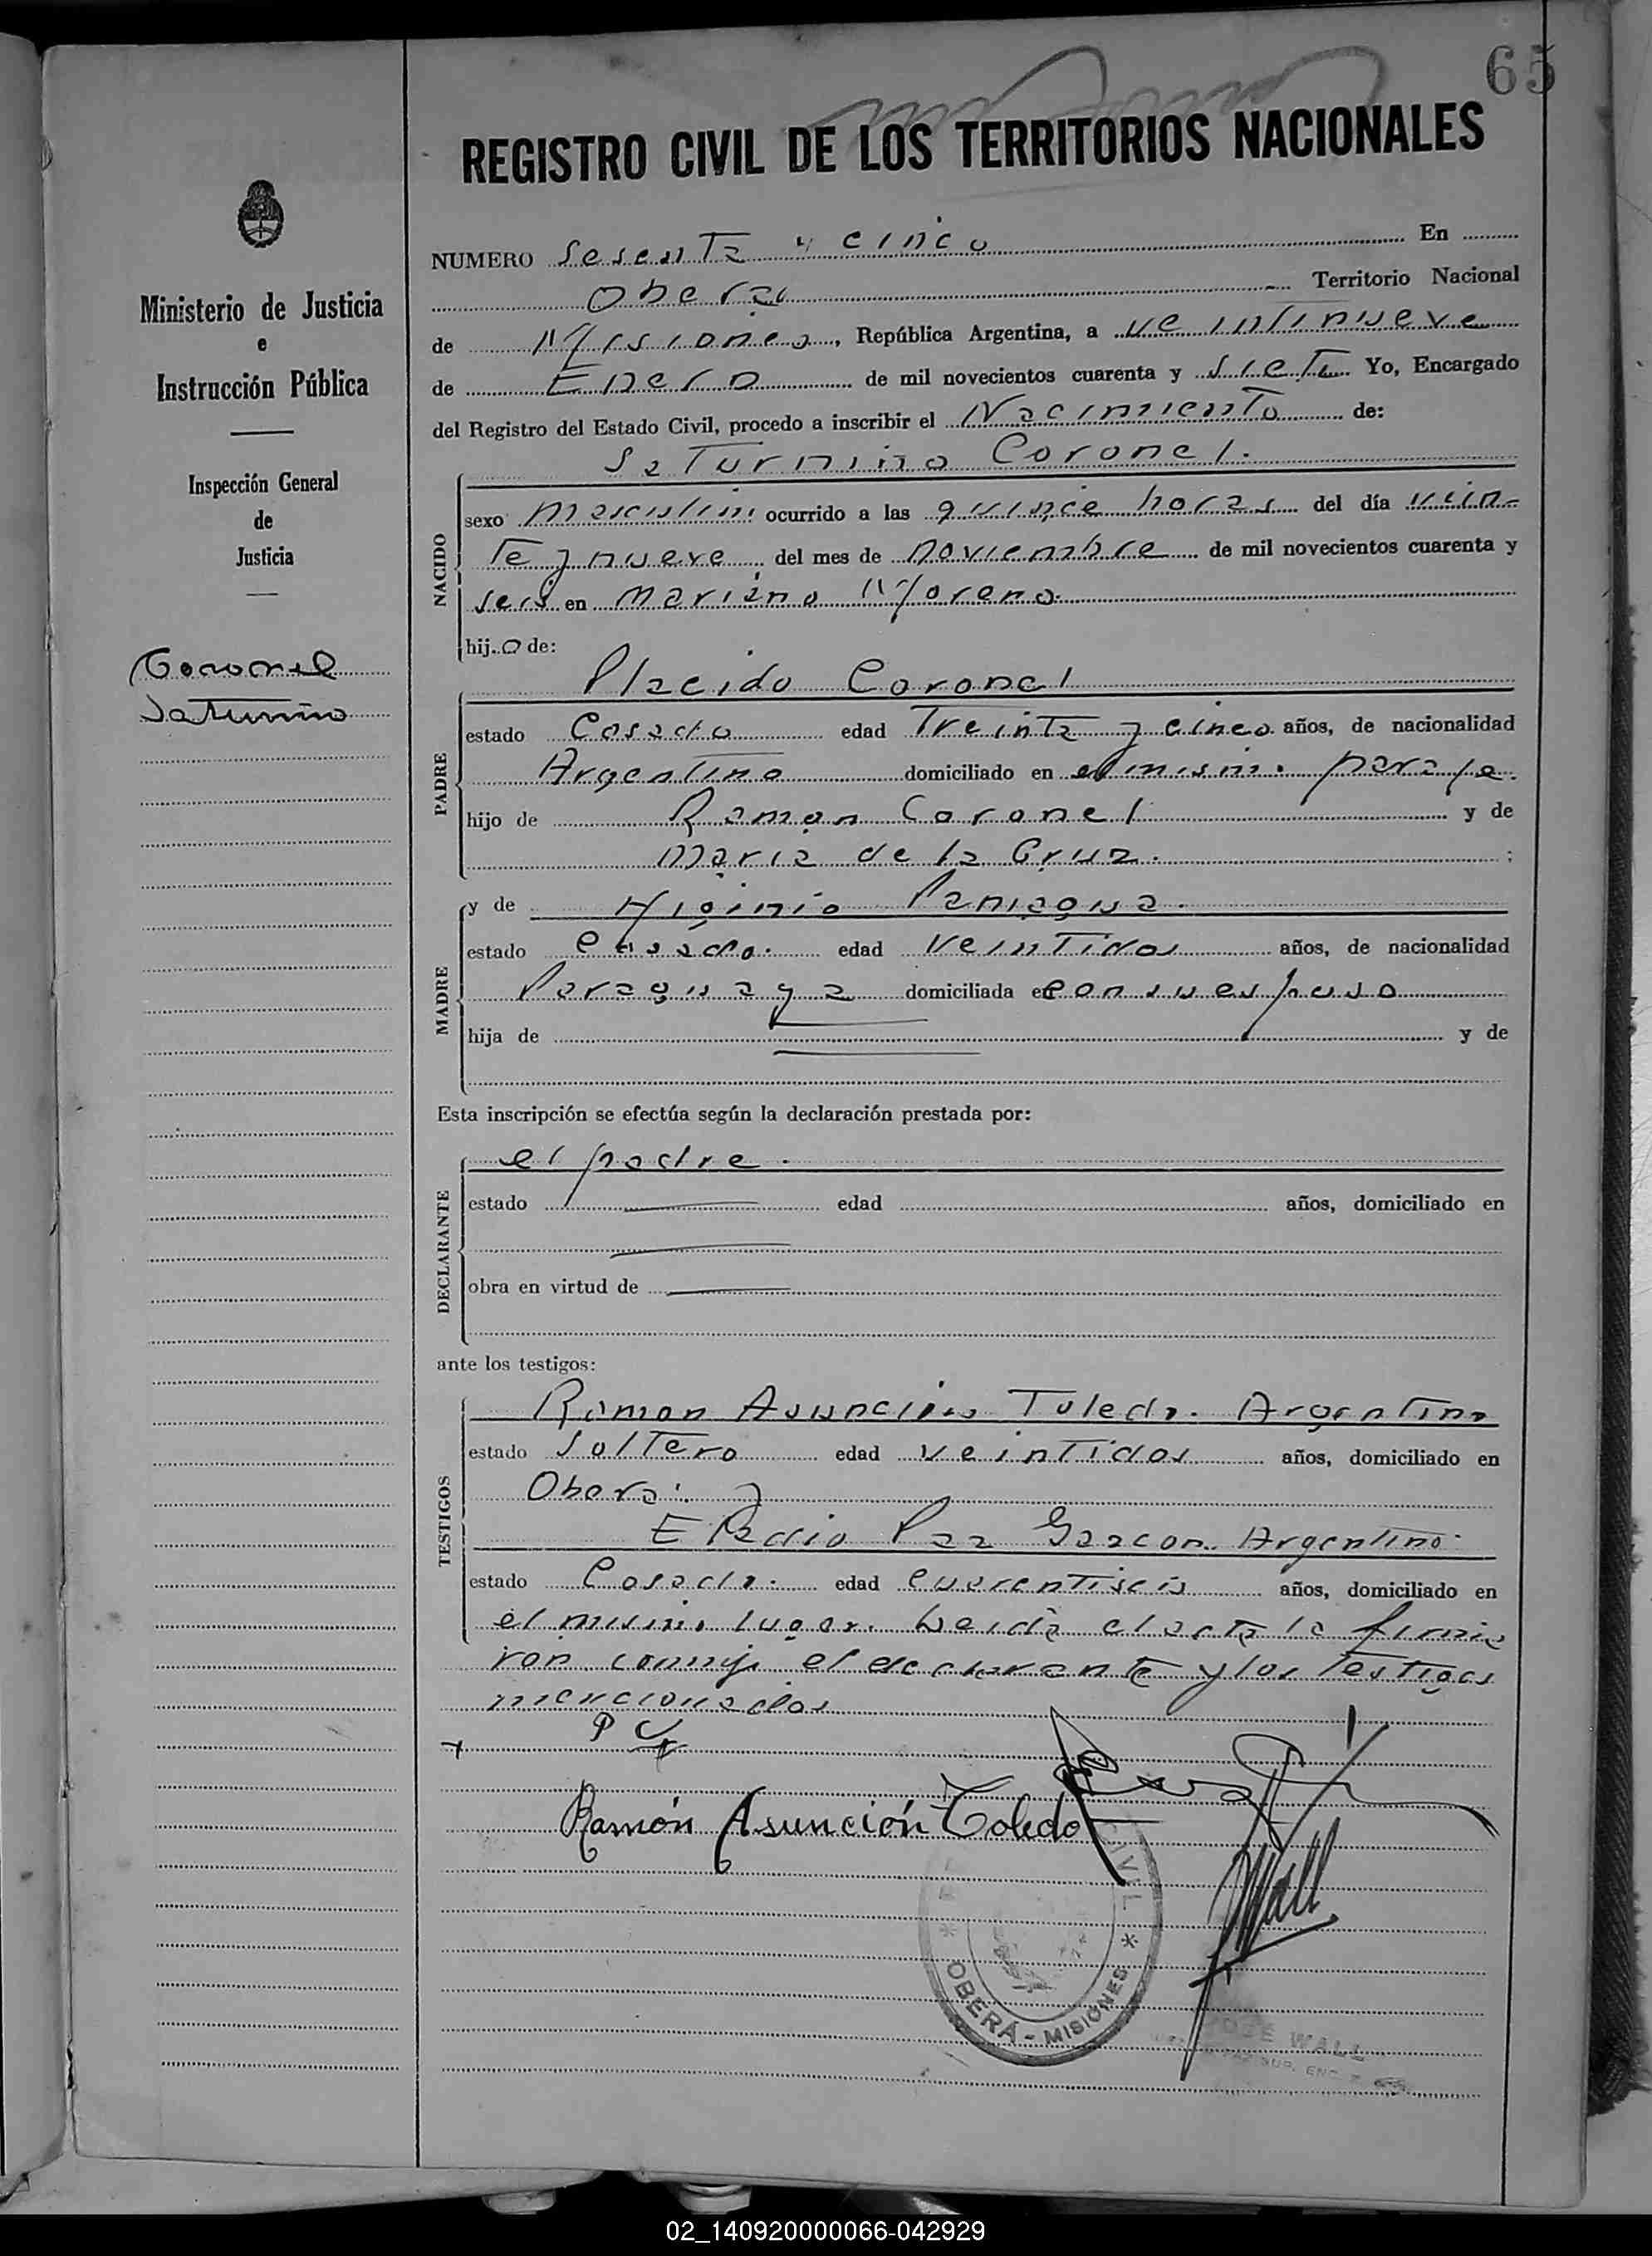 65
REGISTRO CIVIL DE LOS TERRITORIOS NACIONALES
NUMERO Sesenta y cinco En
Oberá Territorio Nacional
de Misiones, República Argentina, a veintinueve
de Enero de mil novecientos cuarenta y siete Yo, Encargado
del Registro del Estado Civil, procedo a inscribir el Nacimiento de:
Saturnino Coronel.
Ministerio de Justicia
e
Instrucción Pública
Inspección General
de
Justicia
Coronel
Saturnino
NACIDO
sexo masculino ocurrido a las quince horas del día vein-
te y nueve del mes de noviembre de mil novecientos cuarenta y
seis en Mariano Moreno.
hijo de:
Placido Coronel
PADRE
estado Casado edad Treinta y cinco años, de nacionalidad
Argentino domiciliado en el mismo paraje.
hijo de Ramon Coronel y de
Maria de la Cruz. ;
y de Higinia Paniagua.
MADRE
estado Casada. edad veintidos años, de nacionalidad
Paraguaya domiciliada en con su esposo
hija de y de
Esta inscripción se efectúa según la declaración prestada por:
el padre.
DECLARANTE
estado edad años, domiciliado en
obra en virtud de
ante los testigos:
TESTIGOS
Ramon Asuncion Toledo. Argentino
estado Soltero edad veintidos años, domiciliado en
Obera. y
Eladio Paz Garzon. Argentino.
estado Casado. edad cuarentiseis años, domiciliado en
el mismo lugar. Leida el acta la firma
ron conmigo el declarante y los Testigos
mencionados
P C
Ramón Asunción Toledo
Wall
CIVIL
* OBERÁ - MISIONES *
JOSE WALL
02_140920000066-042929